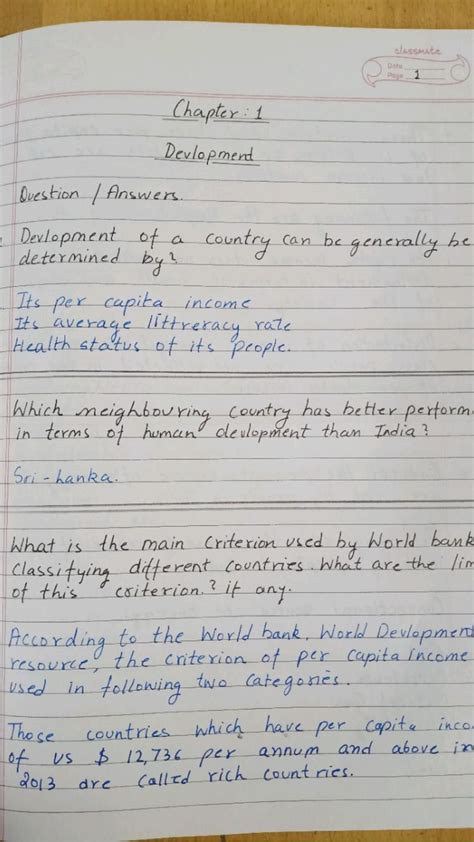 classmate
Date
Page 1
Chapter : 1
Devlopment
Question / Answers.
Devlopment of a country can be generally be
determined by?
Its per capita income
Its average littreracy rate
Health status of its people.
Which neighbouring country has better perform
in terms of human devlopment than India?
Sri-Lanka.
What is the main criterion used by World bank
classifying different countries. What are the lim
of this criterion.? if any.
According to the World bank, World Devlopment
resource, the criterion of per capita income
used in following two categories.
Those countries which have per capita inco
of us $ 12,736 per annum and above in
2013 are called rich countries.